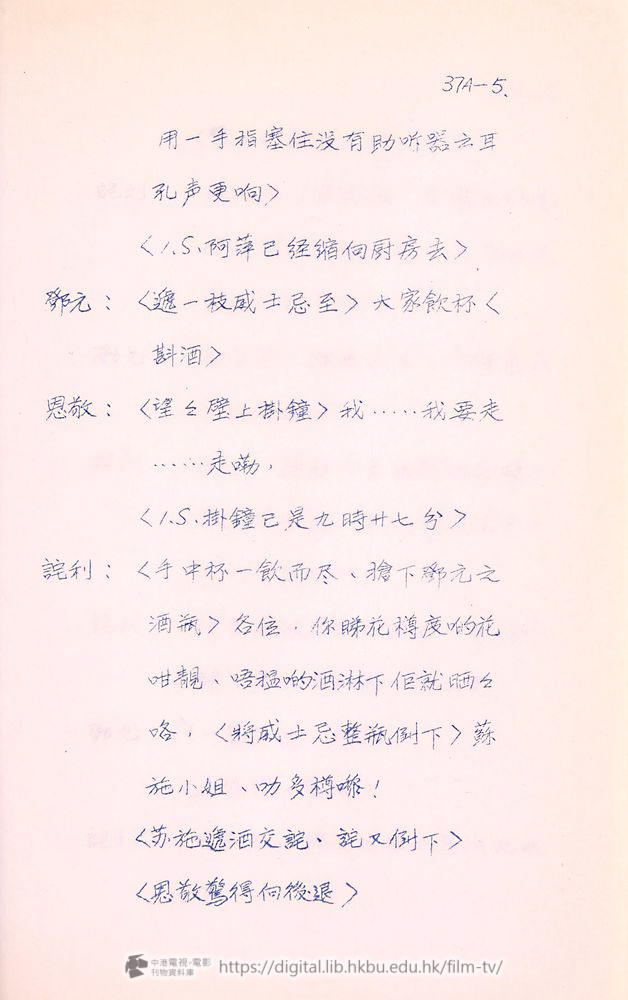 37A-5.
用一手指塞住没有助听器云耳
孔声更响>
<I.S.阿萍已经缩向厨房去>
鄧元：<遞一枝威士忌至>大家飲杯<
斟酒>
恩敬：<望々壁上掛鐘>我……我要走
……走嘞，
<I.S.掛鐘已是九時廿七分>
詫利：<手中杯一飲而尽、搶下鄧元之
酒瓶>各位，你睇花樽度啲花
咁靚、唔揾啲酒淋下佢就晒々
咯，<將威士忌整瓶倒下>蘇
施小姐、叻多樽嚟！
<苏施遞酒交詫、詫又倒下>
<恩敬驚得向後退>
中港電視·電影
刊物資料庫
https://digital.lib.hkbu.edu.hk/film-tv/